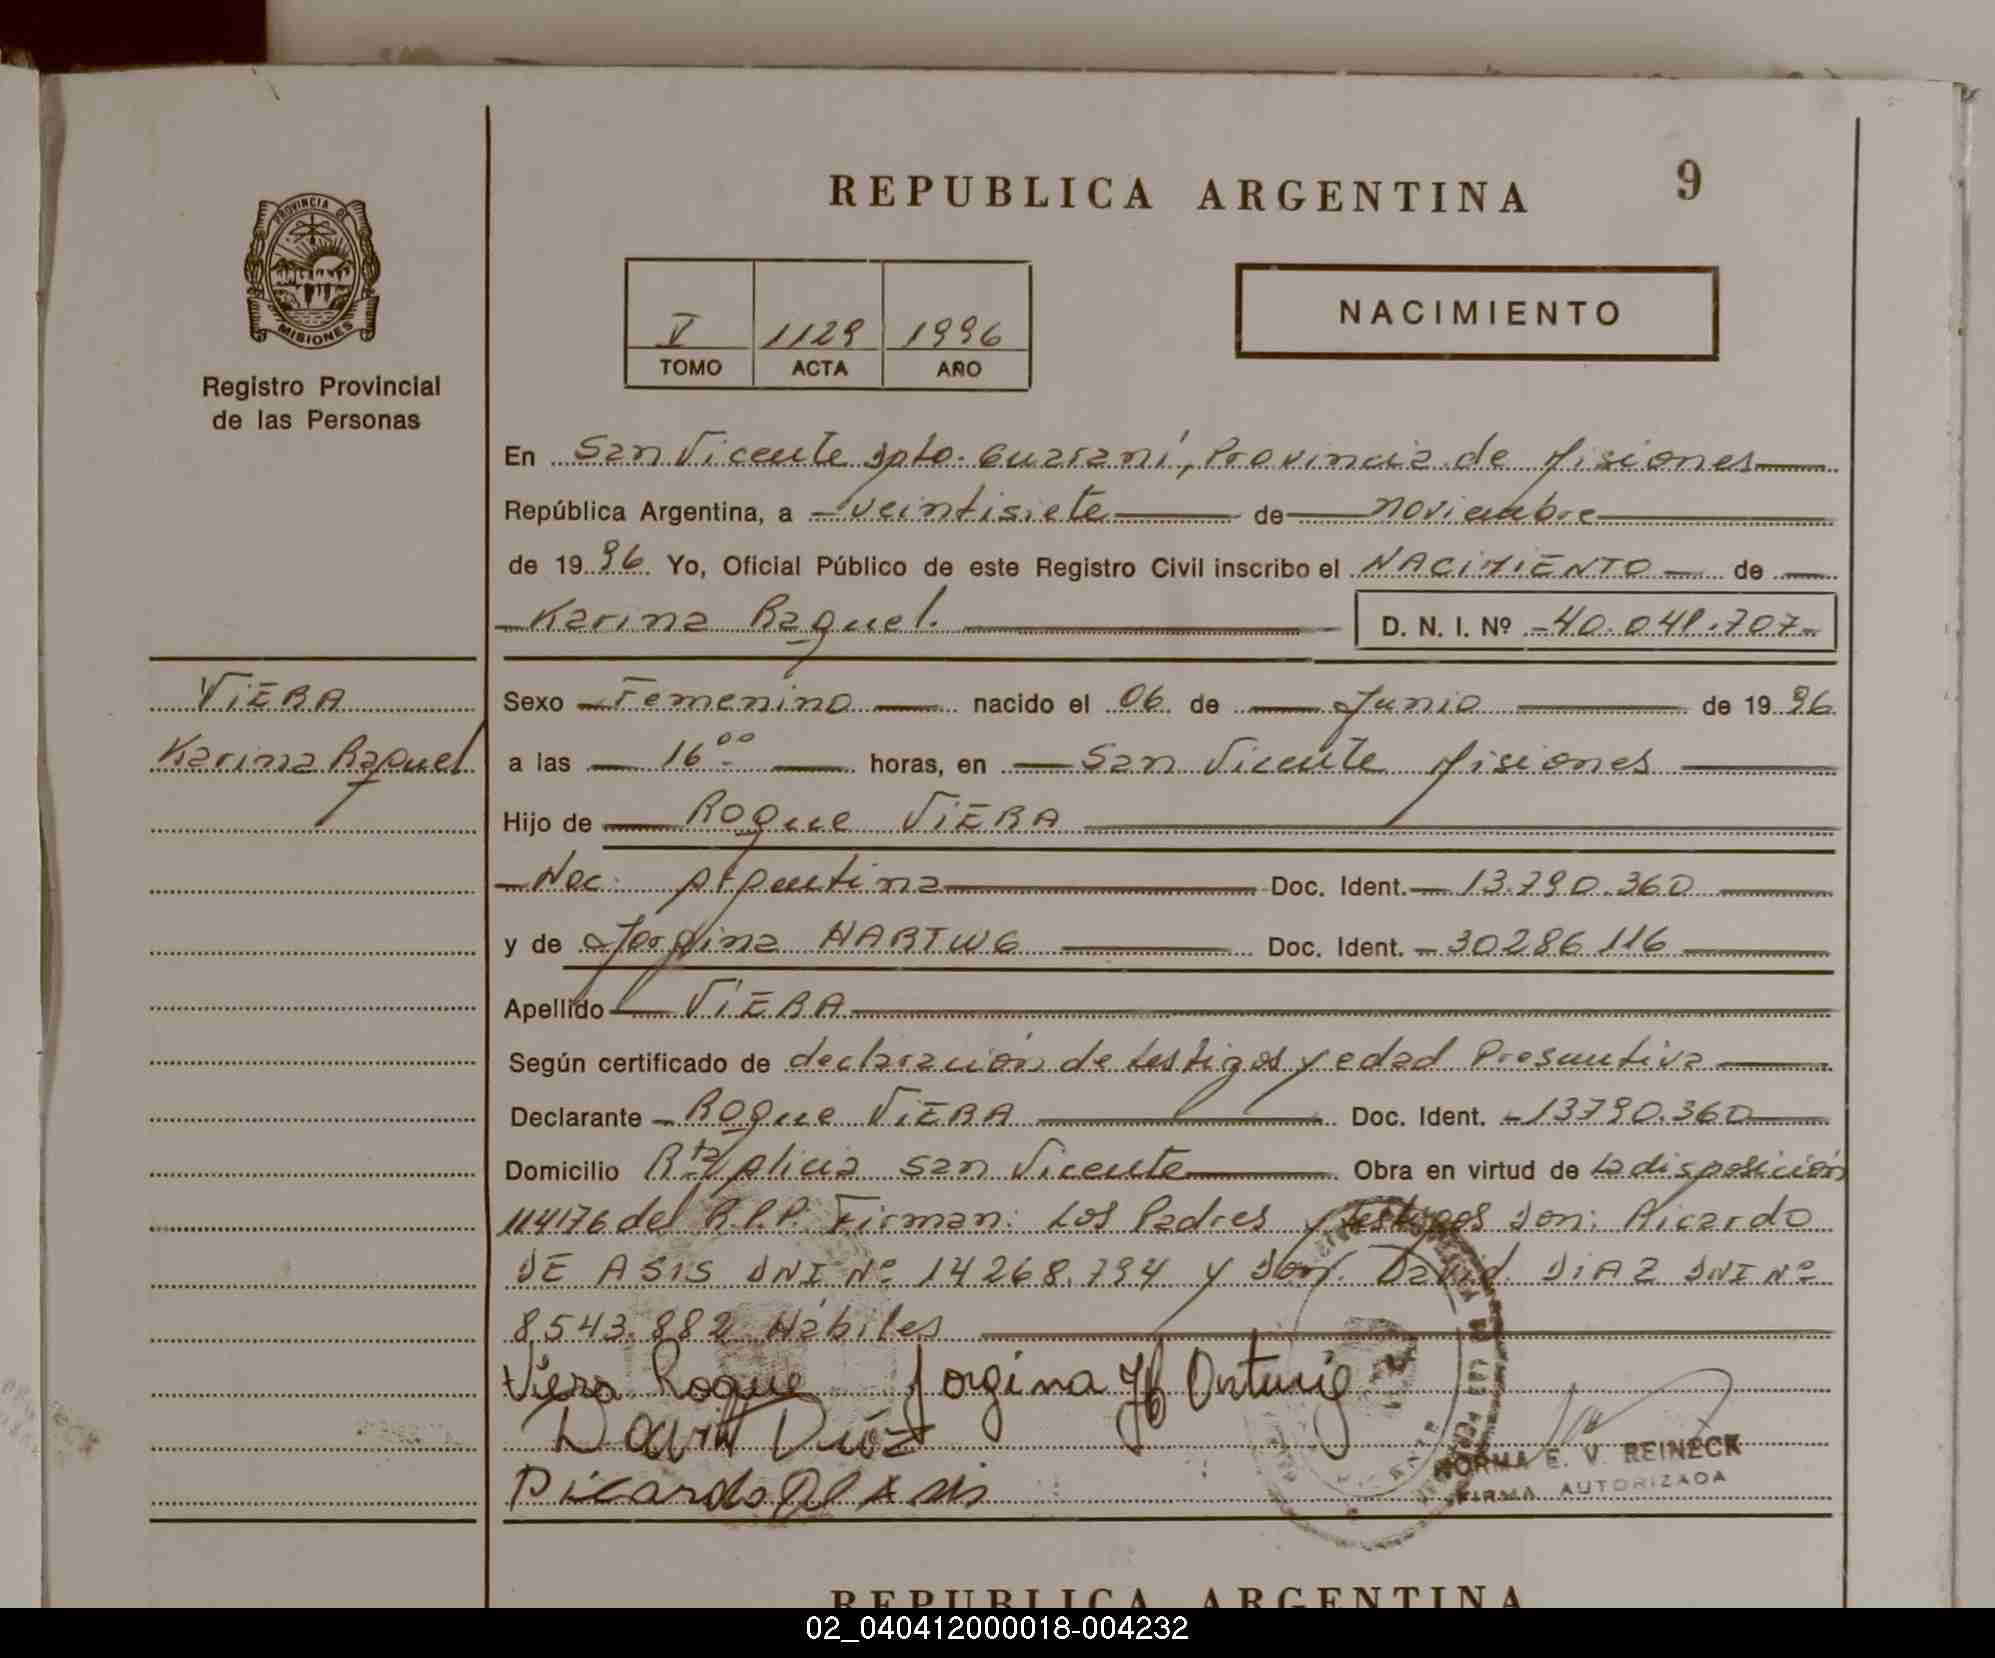 REPUBLICA ARGENTINA
9
PROVINCIA DE
MISIONES
Registro Provincial
de las Personas
V 1129 1996
TOMO ACTA AÑO
NACIMIENTO
En San Vicente Dpto. Guaraní, Provincia de Misiones
República Argentina, a veintisiete de noviembre
de 1996 Yo, Oficial Público de este Registro Civil inscribo el NACIMIENTO de
Karina Raquel. D. N. I. Nº 40.041.707
VIERA
Karina Raquel
Sexo Femenino nacido el 06 de Junio de 1996
a las 16 00 horas, en San Vicente Misiones
Hijo de Roque VIERA
Nac. Argentina Doc. Ident. 13.790.360
y de Jorgina HARTWG Doc. Ident. 30286116
Apellido VIERA
Según certificado de declaración de testigos y edad Presuntiva
Declarante Roque VIERA Doc. Ident. 13790.360
Domicilio Rta Alicia San Vicente Obra en virtud de La disposición
114176 del R.P.P. Firman: Los Padres y Testigos Don: Ricardo
DE ASIS DNI Nº 14268.794 y Don. David DIAZ DNI Nº
8543.882 Hábiles
Viera Roque Jorgina
Ricardo
NORMA E. V. REINECK
FIRMA AUTORIZADA
REPUBLICA ARGENTINA
02_040412000018-004232